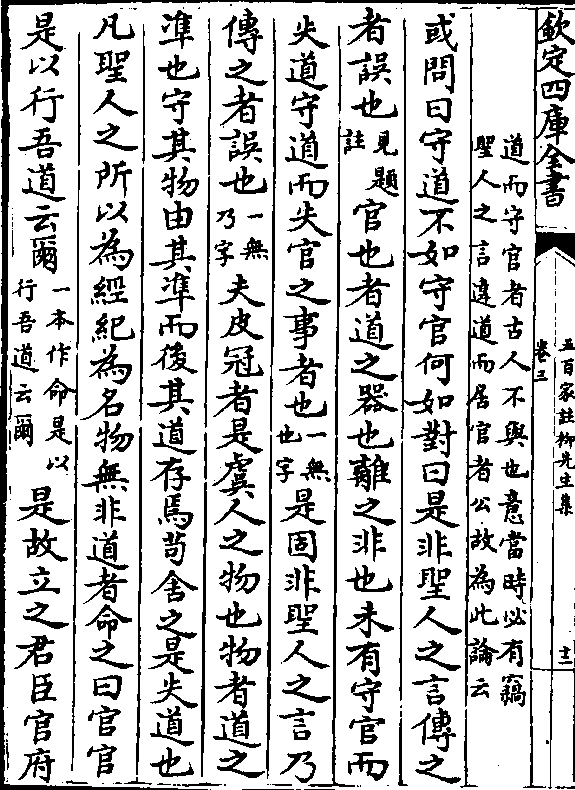 欽定四庫全書
五百家註柳先生集
卷三
十三
道而守官者古人不與也意當時必有竊
聖人之言違道而居官者公故為此論云
或問曰守道不如守官何如對曰是非聖人之言傳之
者誤也見題註官也者道之器也離之非也未有守官而
失道守道而失官之事者也一無也字是固非聖人之言乃
傳之者誤也一無乃字夫皮冠者是虞人之物也物者道之
準也守其物由其準而後其道存焉茍舍之是失道也
凡聖人之所以為經紀為名物無非道者命之曰官官
是以行吾道云爾一本作命是以行吾道云爾是故立之君臣官府